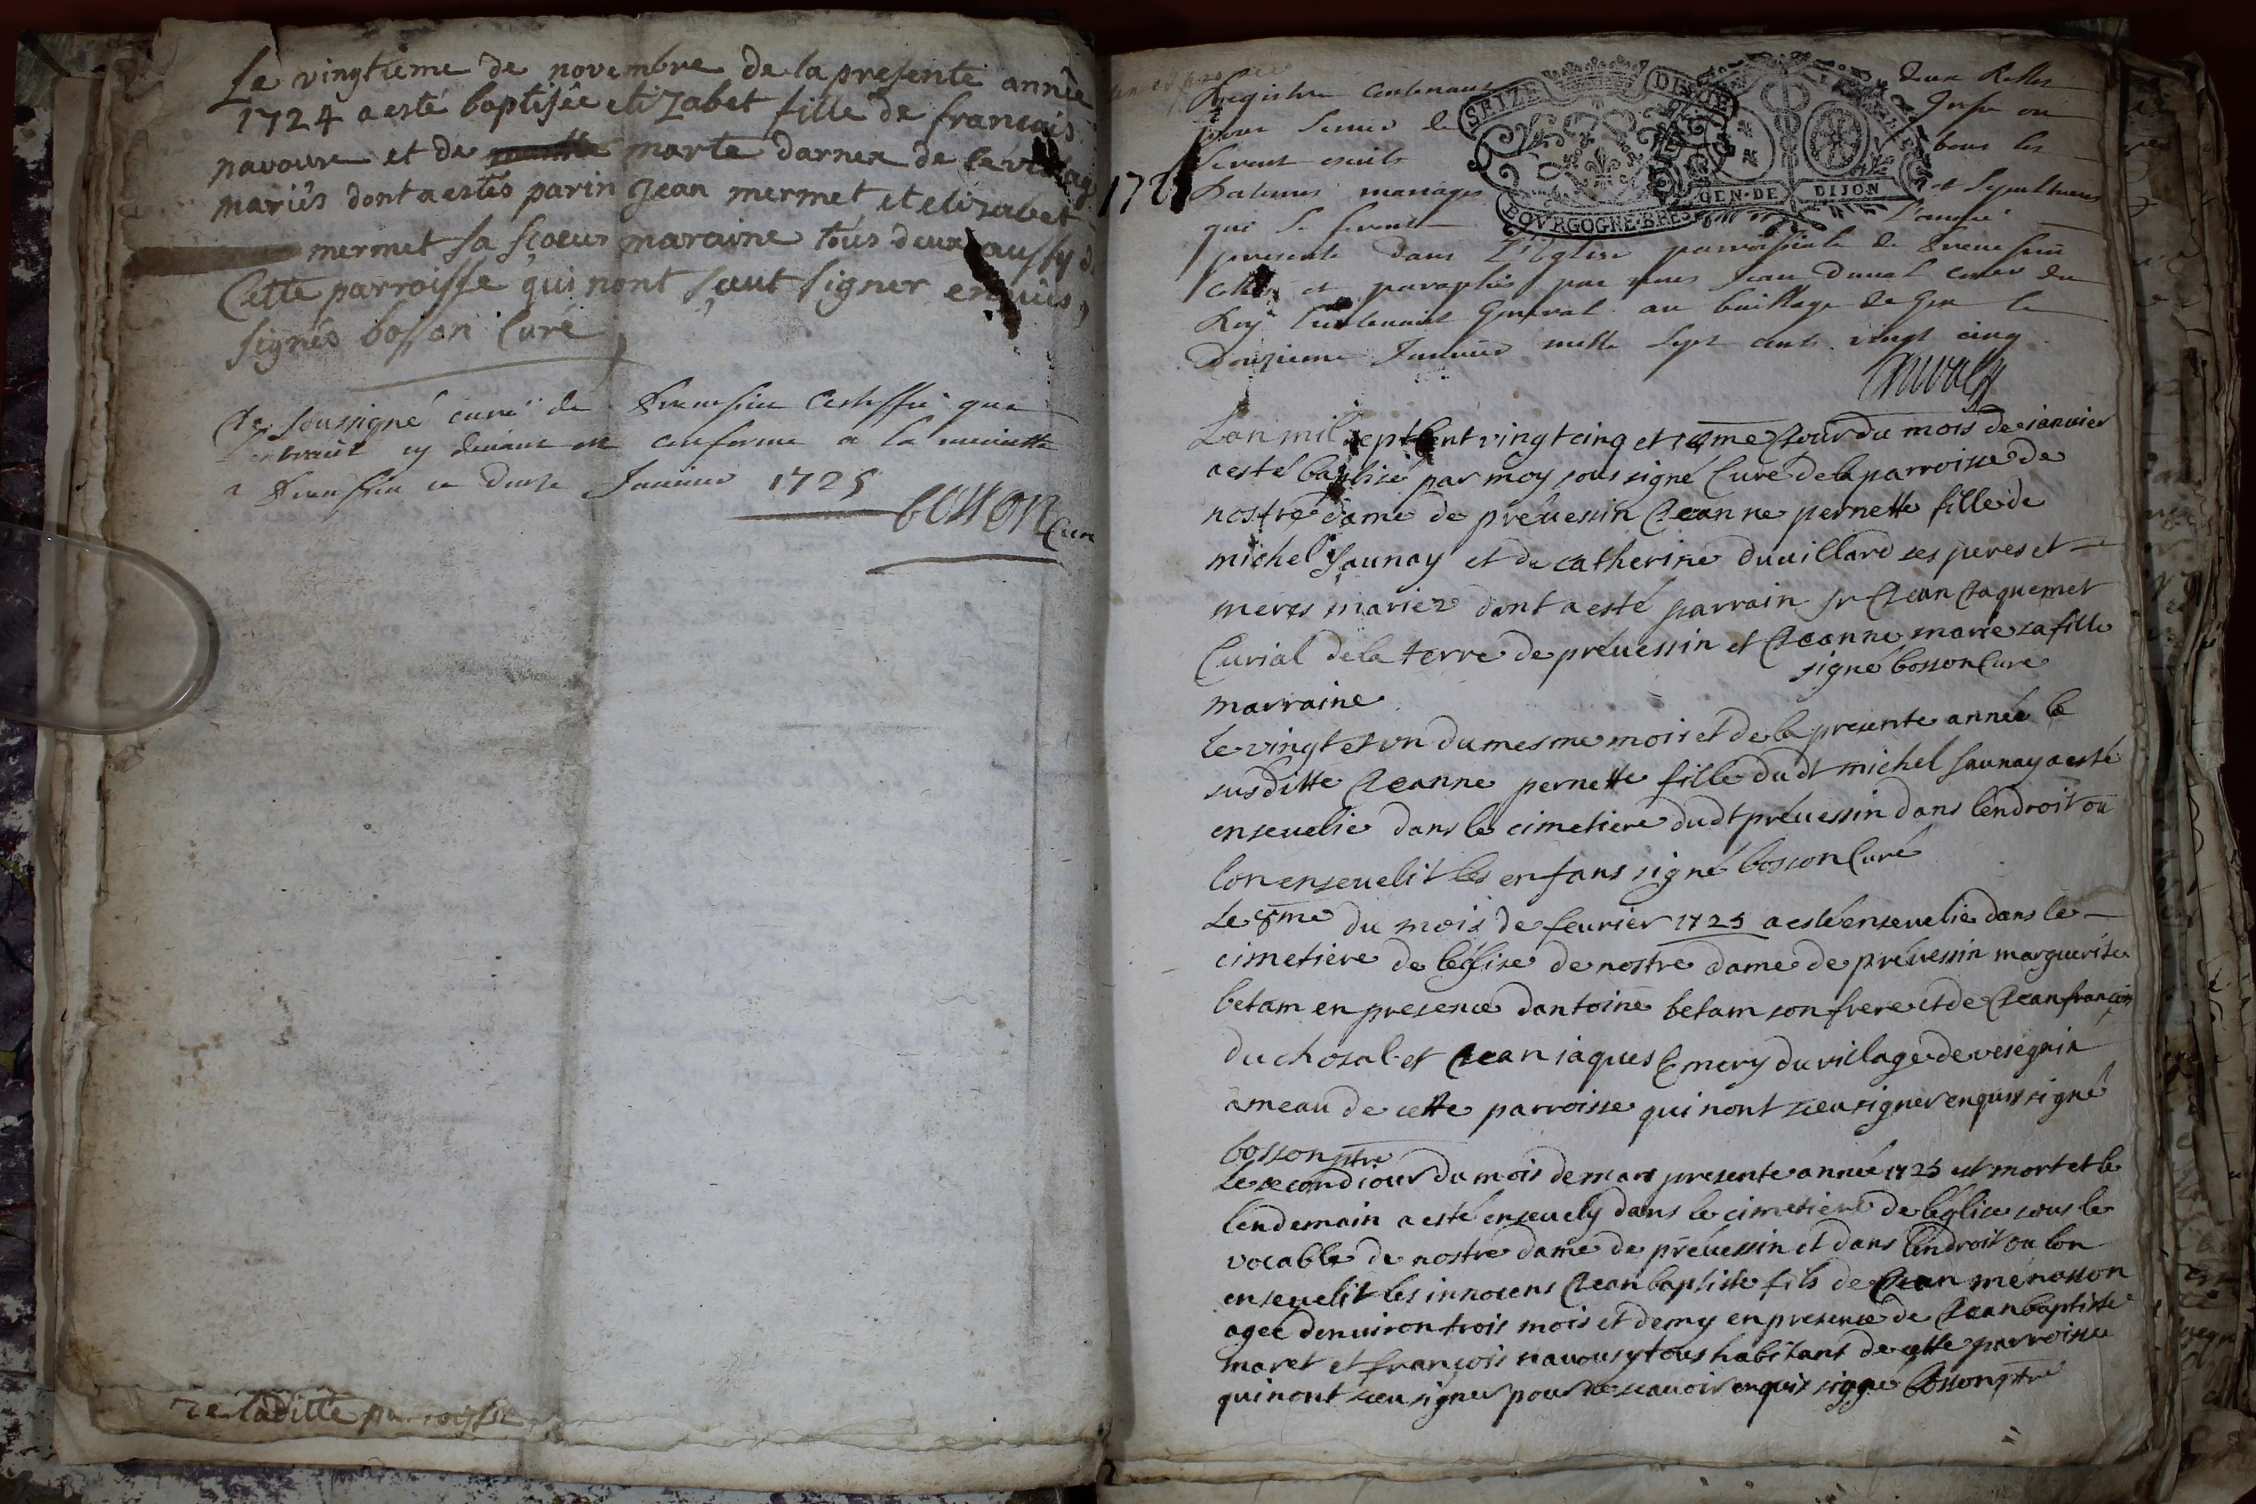 Le vingtieme de novembre de la presente année
1724 a esté baptisée elizabet fille de francois
navoure et de marte darnex de
mariés dont a estés parin Jean mermet et elizabet
mermet sa sçoeur maraine tous deux aussy d
Cette parroisse qui nont sçeut signer enquis,
signés bosson Curé
Je soussigné curé de certiffie que
l'extrait cy devant est conforme a la minutte
a ce douze Janvier 1725
bosson Curé
de ladite parroysse
Registre contenant deux Rolles
pour servir de
seront escrits tous les
172
Batemes mariages et sepultures
qui se feront l'année
presente dans l'Eglise parroissiale de
et paraphés par nous Jean Duval coner du
Roy Lieutenant General au baillage de Gex le
Douzieme Janvier mille sept cents vingt cinq
Duval
SEIZE DENIE
BOVRGOGNE·BRES
GEN·DE DIJON
Lan mil sept cent vingt cinq et jour du mois de ianvier
a esté baptisé par moy sous signé Curé de la parroisse de
nostre dame de prévessin Jeanne pernette fille de
michel Saunay et de catherine duvillard ses peres et
meres mariez dont a esté parrain sr Jean Jaquemet
Curial de la terre de prévessin et Jeanne marie sa fille
signé bosson Curé
marraine
le vingt et un du mesme mois et de la presente année la
susditte Jeanne pernette fille dudt michel Saunay a esté
ensevelie dans le cimetiere dudt prévessin dans lendroit ou
lon ensevelit les enfans signé bosson Curé
Le 8me du mois de fevrier 1725 a esté ensevelie dans le
cimetiere de léglise de nostre dame de prévessin marguerite
betam en presence dantoine betam son frere et de Jean françois
duchosal et Jean iaques Emery du village de vesegnin
ameau de cette parroisse qui nont sceu signer enquis signé
bosson ptre
Le second iour du mois de mars presente année 1725 est mort et le
lendemain a esté ensevely dans le cimetiere de léglise sous le
vocable de nostre dame de prévessin et dans lendroit ou lon
ensevelit les innocens Jean baptiste fils de Jean menasson
agee denviron trois mois et demy en presence de Jean baptiste
maret et françois navoury tous habitans de cette parroisse
qui nont sceu signer pour ne scavoir enquis signé bosson ptre